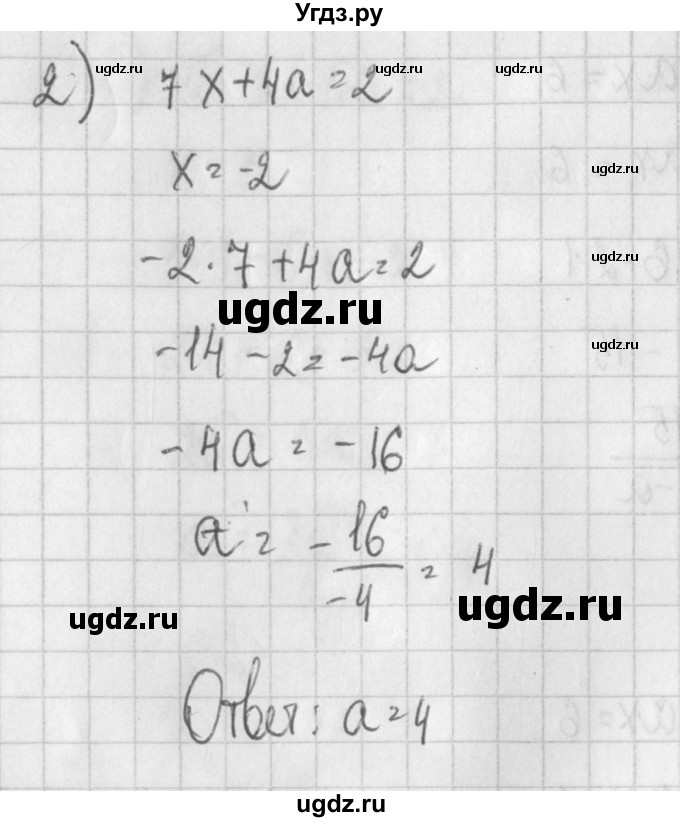 Угдз.ру
ugdz.ru ugdz.ru
2) 7x+4a=2
x=-2 ugdz.ru
-2·7+4a=2
ugdz.ru
-14-2=-4a ugdz.ru
-4a=-16
a=-16/-4=4
ugdz.ru ugdz.ru
Ответ: a=4
ugdz.ru ugdz.ru
ugdz.ru